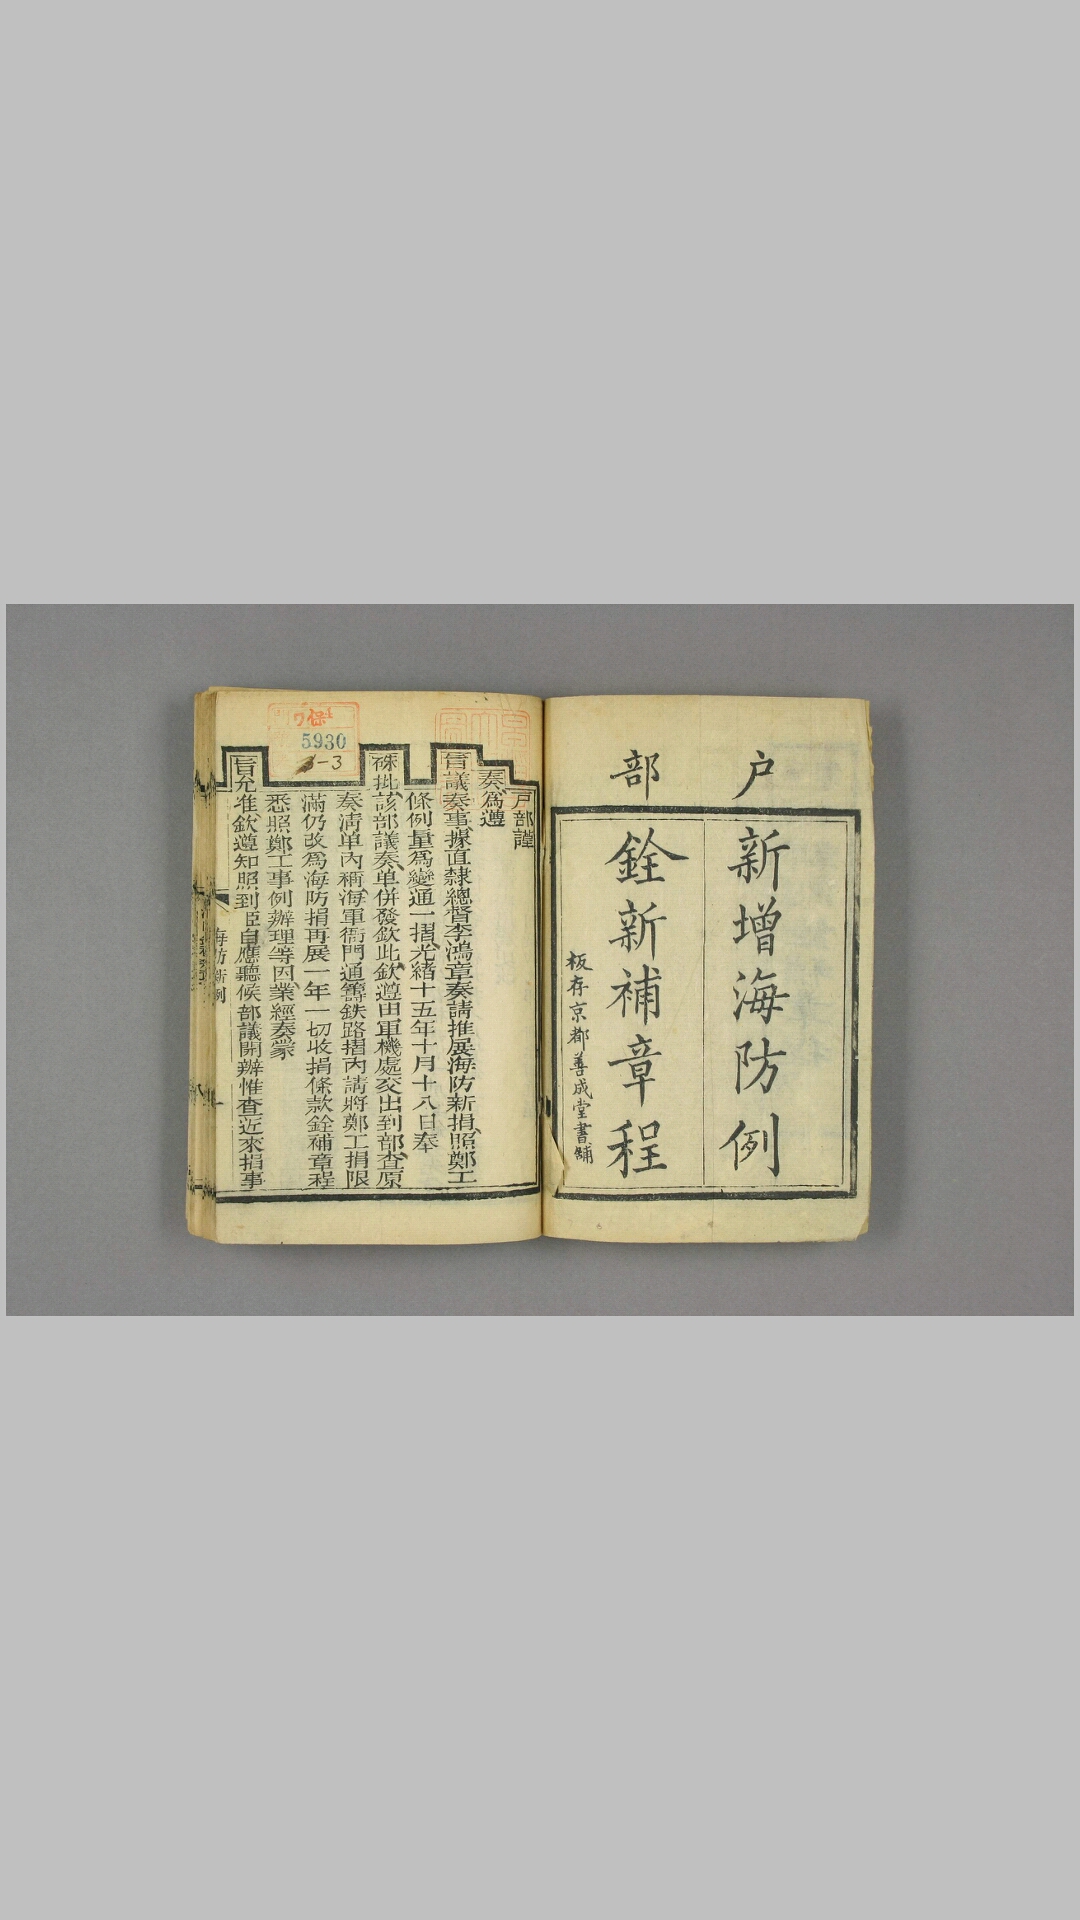 户部
新增海防例
銓新補章程
板存京都善成堂書舖
戸部謹
奏爲遵
旨議奏事據直隸總督李鴻章奏請推展海防新捐照鄭工
條例量爲變通一摺光緒十五年十月十八日奉
硃批該部議奏單併發欽此欽遵由軍機處交出到部查原
奏淸单內稱海軍衙門通籌鉄路摺內請將鄭工捐限
滿仍改爲海防捐再展一年一切收捐條款銓補章程
悉照鄭工事例辦理等因業經奏蒙
旨允准欽遵知照到臣自應聽候部議開辦惟查近來捐事
海防新例
5930
3-3